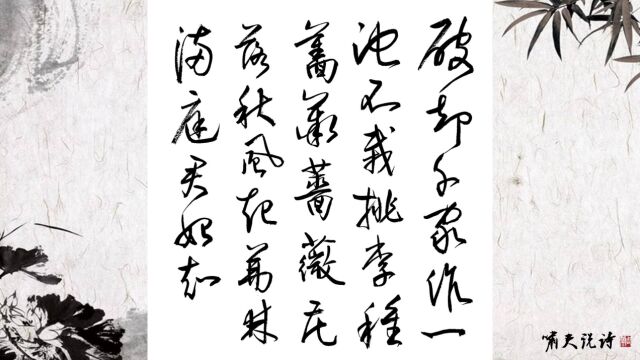 破却千家作一
池不栽桃李種
薔薇薔薇花
落秋風起荆棘
满庭君始知
嘯夫说诗